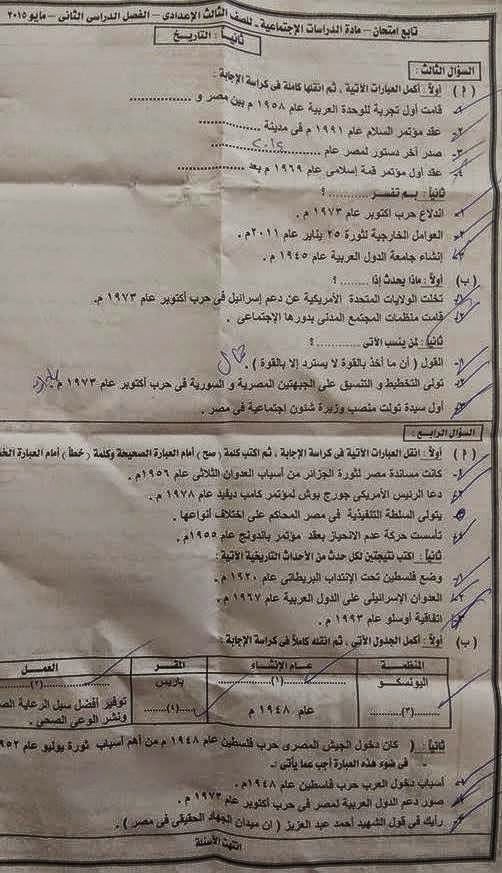 تابع امتحان – مادة الدراسات الإجتماعية – للصف الثالث الإعدادى – الفصل الدراسى الثانى – مايو ٢٠١٥
ثانياً : التاريخ
السؤال الثالث :
( أ ) أولاً : أكمل العبارات الآتية ، ثم انقلها كاملة فى كراسة الإجابة :
١- قامت أول تجربة للوحدة العربية عام ١٩٥٨ م بين مصر و ..............
٢- عقد مؤتمر السلام عام ١٩٩١ م فى مدينة ..............
٣- صدر آخر دستور لمصر عام ..............
٤- عقد أول مؤتمر قمة إسلامى عام ١٩٦٩ م بعد ..............
ثانياً : بم تفسر .......... ؟
١- اندلاع حرب أكتوبر عام ١٩٧٣ م .
٢- العوامل الخارجية لثورة ٢٥ يناير عام ٢٠١١م .
٣- إنشاء جامعة الدول العربية عام ١٩٤٥ م .
(ب) أولاً : ماذا يحدث إذا ........ ؟
١- تخلت الولايات المتحدة الأمريكية عن دعم إسرائيل فى حرب أكتوبر عام ١٩٧٣ م .
٢- قامت منظمات المجتمع المدنى بدورها الإجتماعى .
ثانياً : لمن ينسب الآتى .......... ؟
١- القول ( أن ما أخذ بالقوة لا يسترد إلا بالقوة ) .
٢- تولى التخطيط و التنسيق على الجبهتين المصرية و السورية فى حرب أكتوبر عام ١٩٧٣ م .
٣- أول سيدة تولت منصب وزيرة شئون اجتماعية فى مصر .
السؤال الرابع :
( أ ) أولاً : انقل العبارات الآتية فى كراسة الإجابة ، ثم اكتب كلمة ( صح ) أمام العبارة الصحيحة وكلمة ( خطأ ) أمام العبارة
١- كانت مساندة مصر لثورة الجزائر من أسباب العدوان الثلاثى عام ١٩٥٦م .
٢- دعا الرئيس الأمريكى جورج بوش لمؤتمر كامب ديفيد عام ١٩٧٨ م .
يتولى السلطة التنفيذية فى مصر المحاكم على اختلاف أنواعها .
٤- تأسست حركة عدم الانحياز بعقد مؤتمر باندونج عام ١٩٥٥م .
ثانياً : اكتب نتيجتين لكل حدث من الأحداث التاريخية الآتية :
١- وضع فلسطين تحت الإنتداب البريطانى عام ١٩٢٠ م .
٢- العدوان الإسرائيلى على الدول العربية عام ١٩٦٧ م .
٣- اتفاقية أوسلو عام ١٩٩٣ م .
(ب) أولاً : أكمل الجدول الآتى ، ثم انقله كاملاً فى كراسة الإجابة :
المنظمة عام الإنشاء المقر العمل
اليونسكو ......(١)...... باريس ......(٢)......
......(٣)...... عام ١٩٤٨ م توفير أفضل سبل الرعاية
ونشر الوعى الصحى .
ثانياً : ( كان دخول الجيش المصرى حرب فلسطين عام ١٩٤٨ م من أهم أسباب ثورة يوليو عام
فى ضوء هذه العبارة أجب عما يأتى :-
١- أسباب دخول العرب حرب فلسطين عام ١٩٤٨م .
٢- صور دعم الدول العربية لمصر فى حرب أكتوبر عام ١٩٧٣ م .
٣- رأيك فى قول الشهيد أحمد عبد العزيز ( إن ميدان الجهاد الحقيقى فى مصر ) .
انتهت الأسئلة